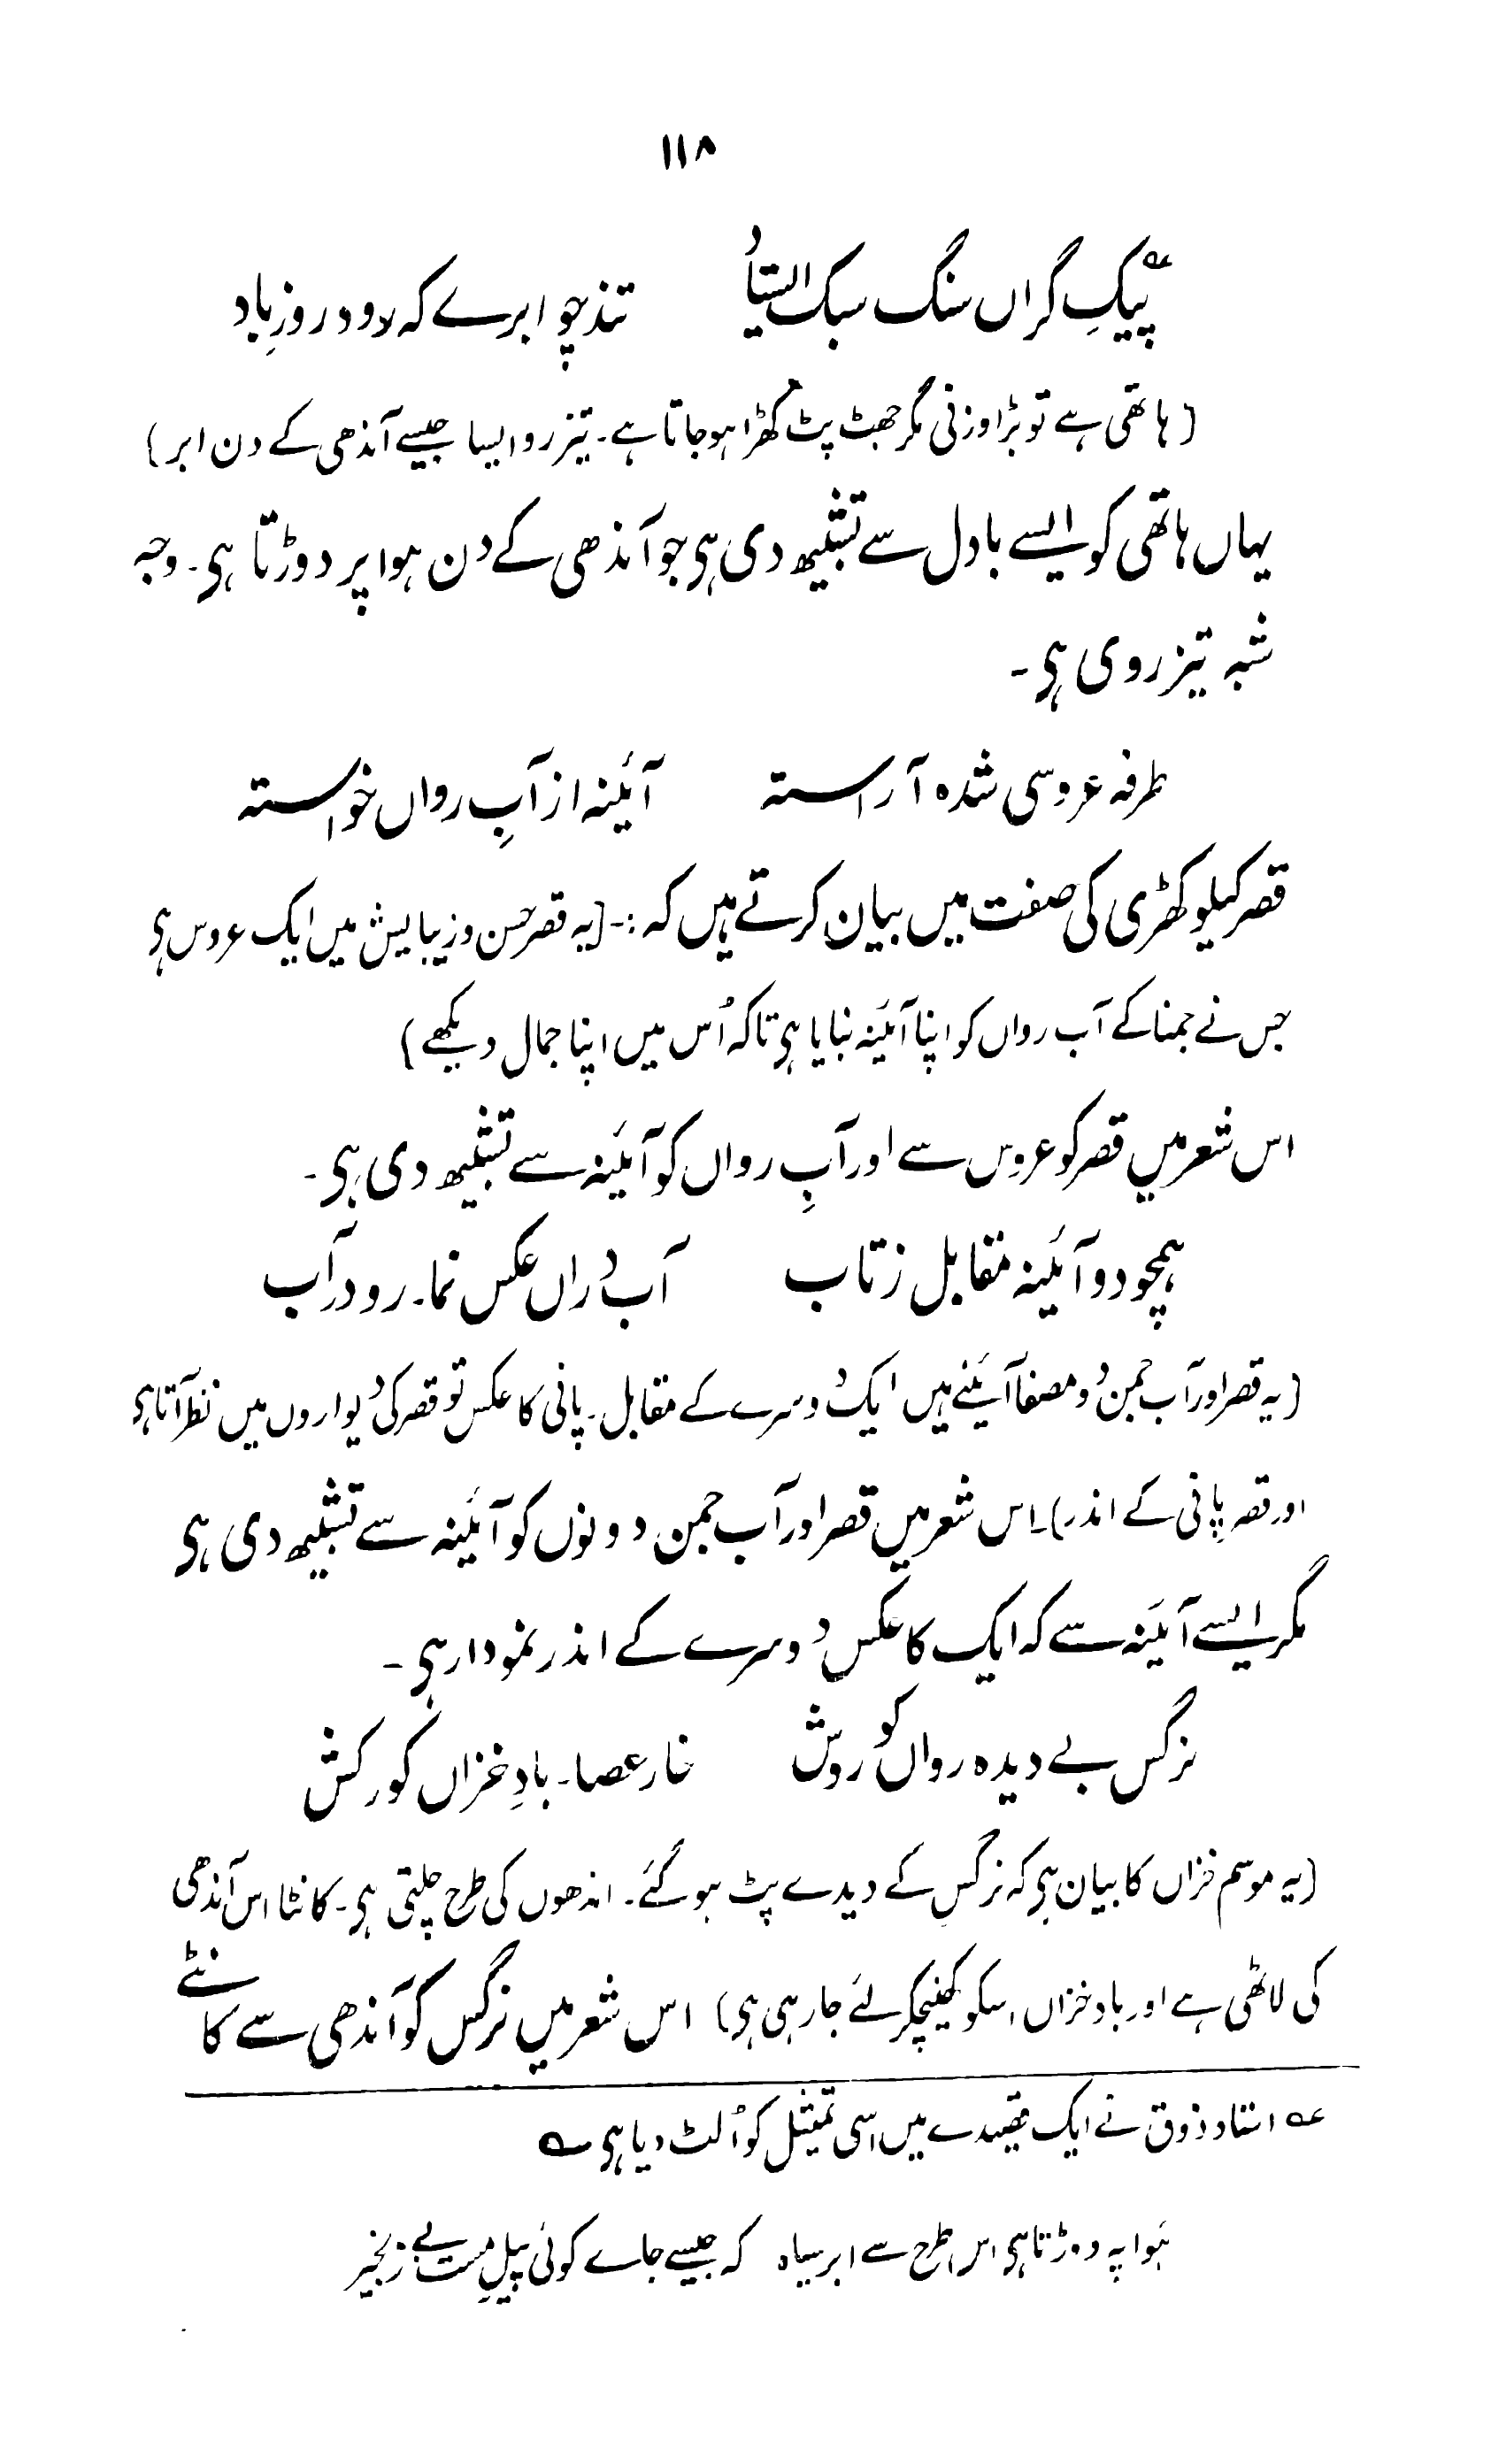 ۱۱۸
پیکِ گراں سنگ سبک ایستاد تند چو ابرے کہ رود روزِ باد
(ہاتھی ہے تو بڑا وزنی مگر جھٹ پٹ کھڑا ہو جاتا ہے۔ تیز رو ایسا جیسے آندھی کے دن ابر)
یہاں ہاتھی کو ایسے بادل سے تشبیہ دی ہی جو آندھی کے دن ہوا پر دوڑتا ہی۔ وجہ
شبہ تیز روی ہی۔
طرفہ عروسی شدہ آراستہ آئینہ از آبِ رواں خواستہ
قصر کیلوکھڑی کی صفت میں بیان کرتے ہیں کہ :- (یہ قصر حسن و زیبایش میں ایک عروس ہی
جس نے جمنا کے آب رواں کو اپنا آئینہ بنایا ہی تاکہ اُس میں اپنا جمال دیکھے)
اس شعر میں قصر کو عروس سے اور آبِ رواں کو آئینہ سے تشبیہ دی ہی۔
ہمچو دو آئینہ مقابل ز تاب آب دُراں عکس نما۔ رو در آب
(یہ قصر اور آب جمن دو مصفا آئینے ہیں ایک دوسرے کے مقابل۔ پانی کا عکس تو قصر کی دیواروں میں نظر آتا ہی
اور قصر پانی کے اندر)۔ اس شعر میں قصر اور آب جمن دونوں کو آئینہ سے تشبیہ دی ہی
مگر ایسے آئینہ سے کہ ایک کا عکس دوسرے کے اندر نمودار ہی۔
نرگس بے دیدہ رواں کور وش خار عصا۔ بادِ خزاں کور کش
(یہ موسم خزاں کا بیان ہی کہ نرگس کے دیدے پٹ ہو گئے۔ اندھوں کی طرح چلتی ہی۔ کانٹا اس آندھی
کی لاٹھی ہے اور باد خزاں اسکو کھینچکر لئے جا رہی ہی) اس شعر میں نرگس کو آندھی سے کانٹے
؎ استاد ذوق نے ایک قصیدے میں اسی تمثیل کو اُلٹ دیا ہی ؎
ہَوا پہ دوڑتا ہی اس طرح سے ابر سیاہ کہ جیسے جاے کوئی پیلِ مست بے زنجیر